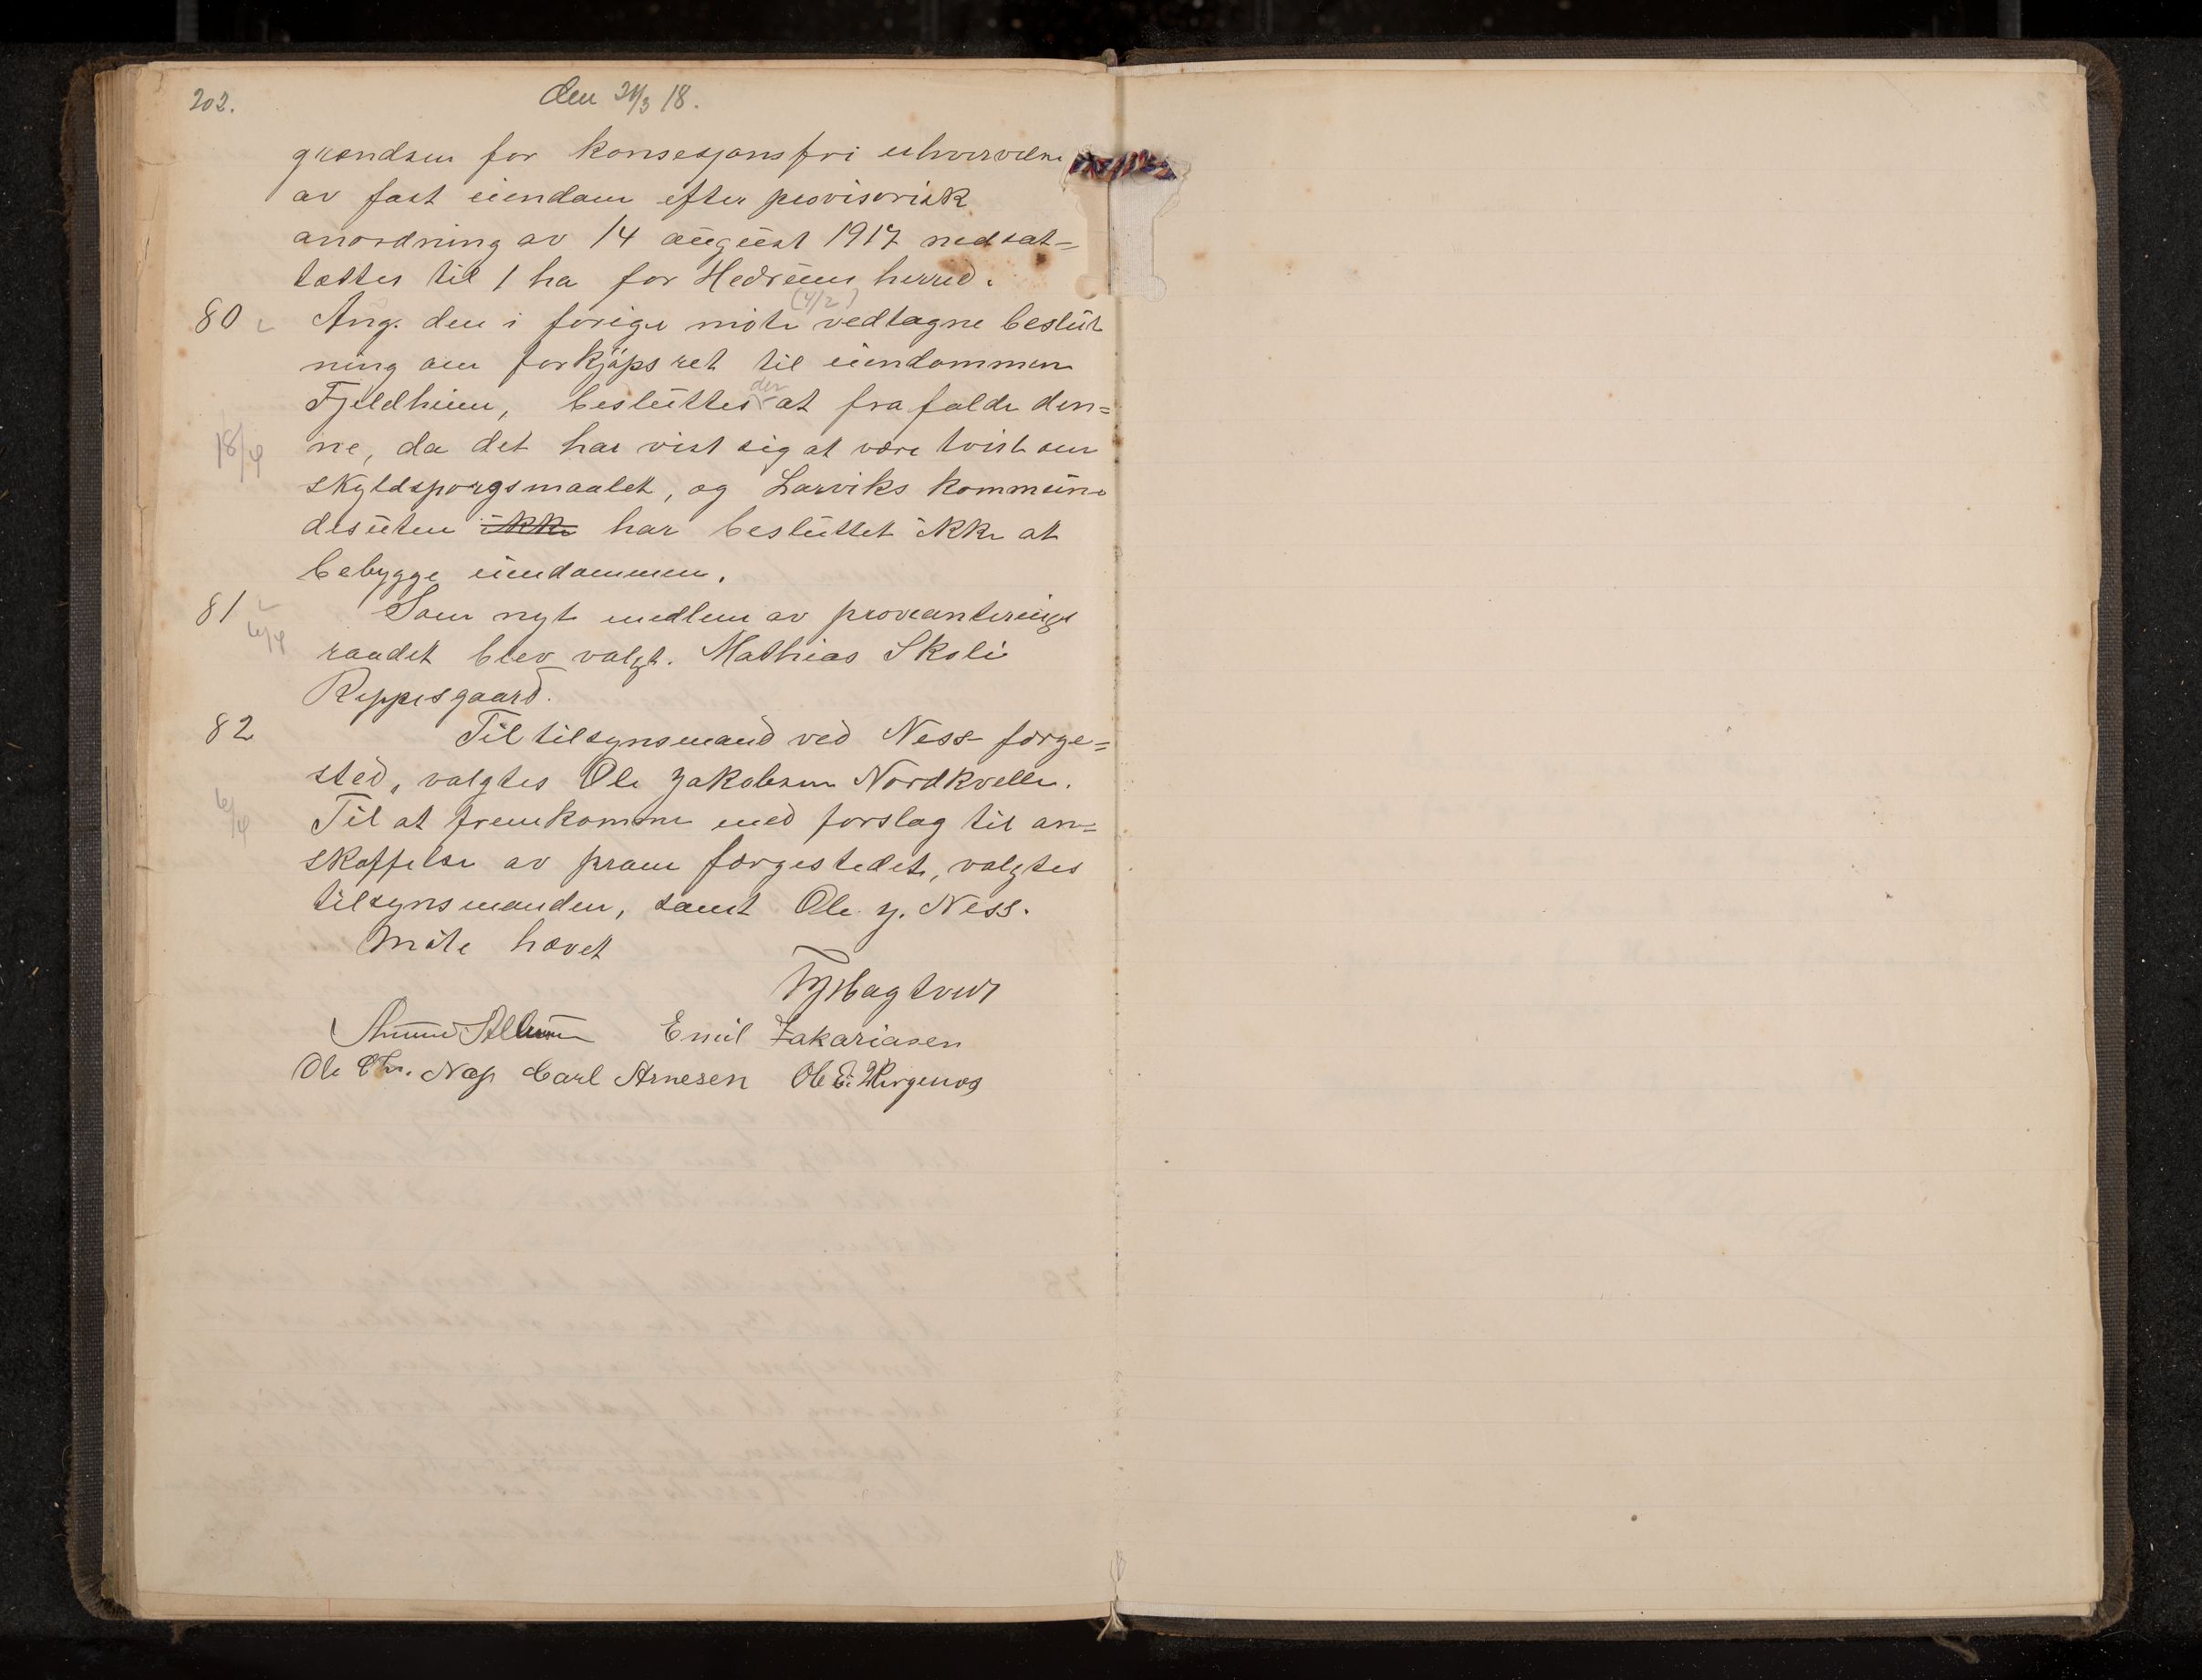 202.
den 21/3 18.
grændsen for konsesjonsfri erhvervelse
av fast eiendom efter provisorisk
anordning av 14 august 1917 nedsat-
tættes til 1 ha for Hedrum herred.
80 Ang. den i forige møte (4/2) vedtagne beslut
ning om forkjøpsret til eiendommen
Fjeldheim, besluttes der at frafalde den=
18/4 ne, da det har vist sig at være tvist om
skyldsporgsmaalet, og Larviks kommune
desuten ikke har besluttet ikke at
bebygge eiendommen.
81 Som nyt medlem av provianterings
6/4 raadet blev valgt. Mathias Skoli
Reppesgaard.
82 Til tilsynsmand ved Ness færge=
sted, valgtes Ole Jakobsen Nordkvelle.
6/4 Til at fremkomme med forslag til an=
skaffelse av pram færgestedet, valgtes
tilsynsmanden, samt Ole J. Ness.
Møte hævet
Emil Zakariasen
Ole Chr. Næss Carl Arnesen Ole E.